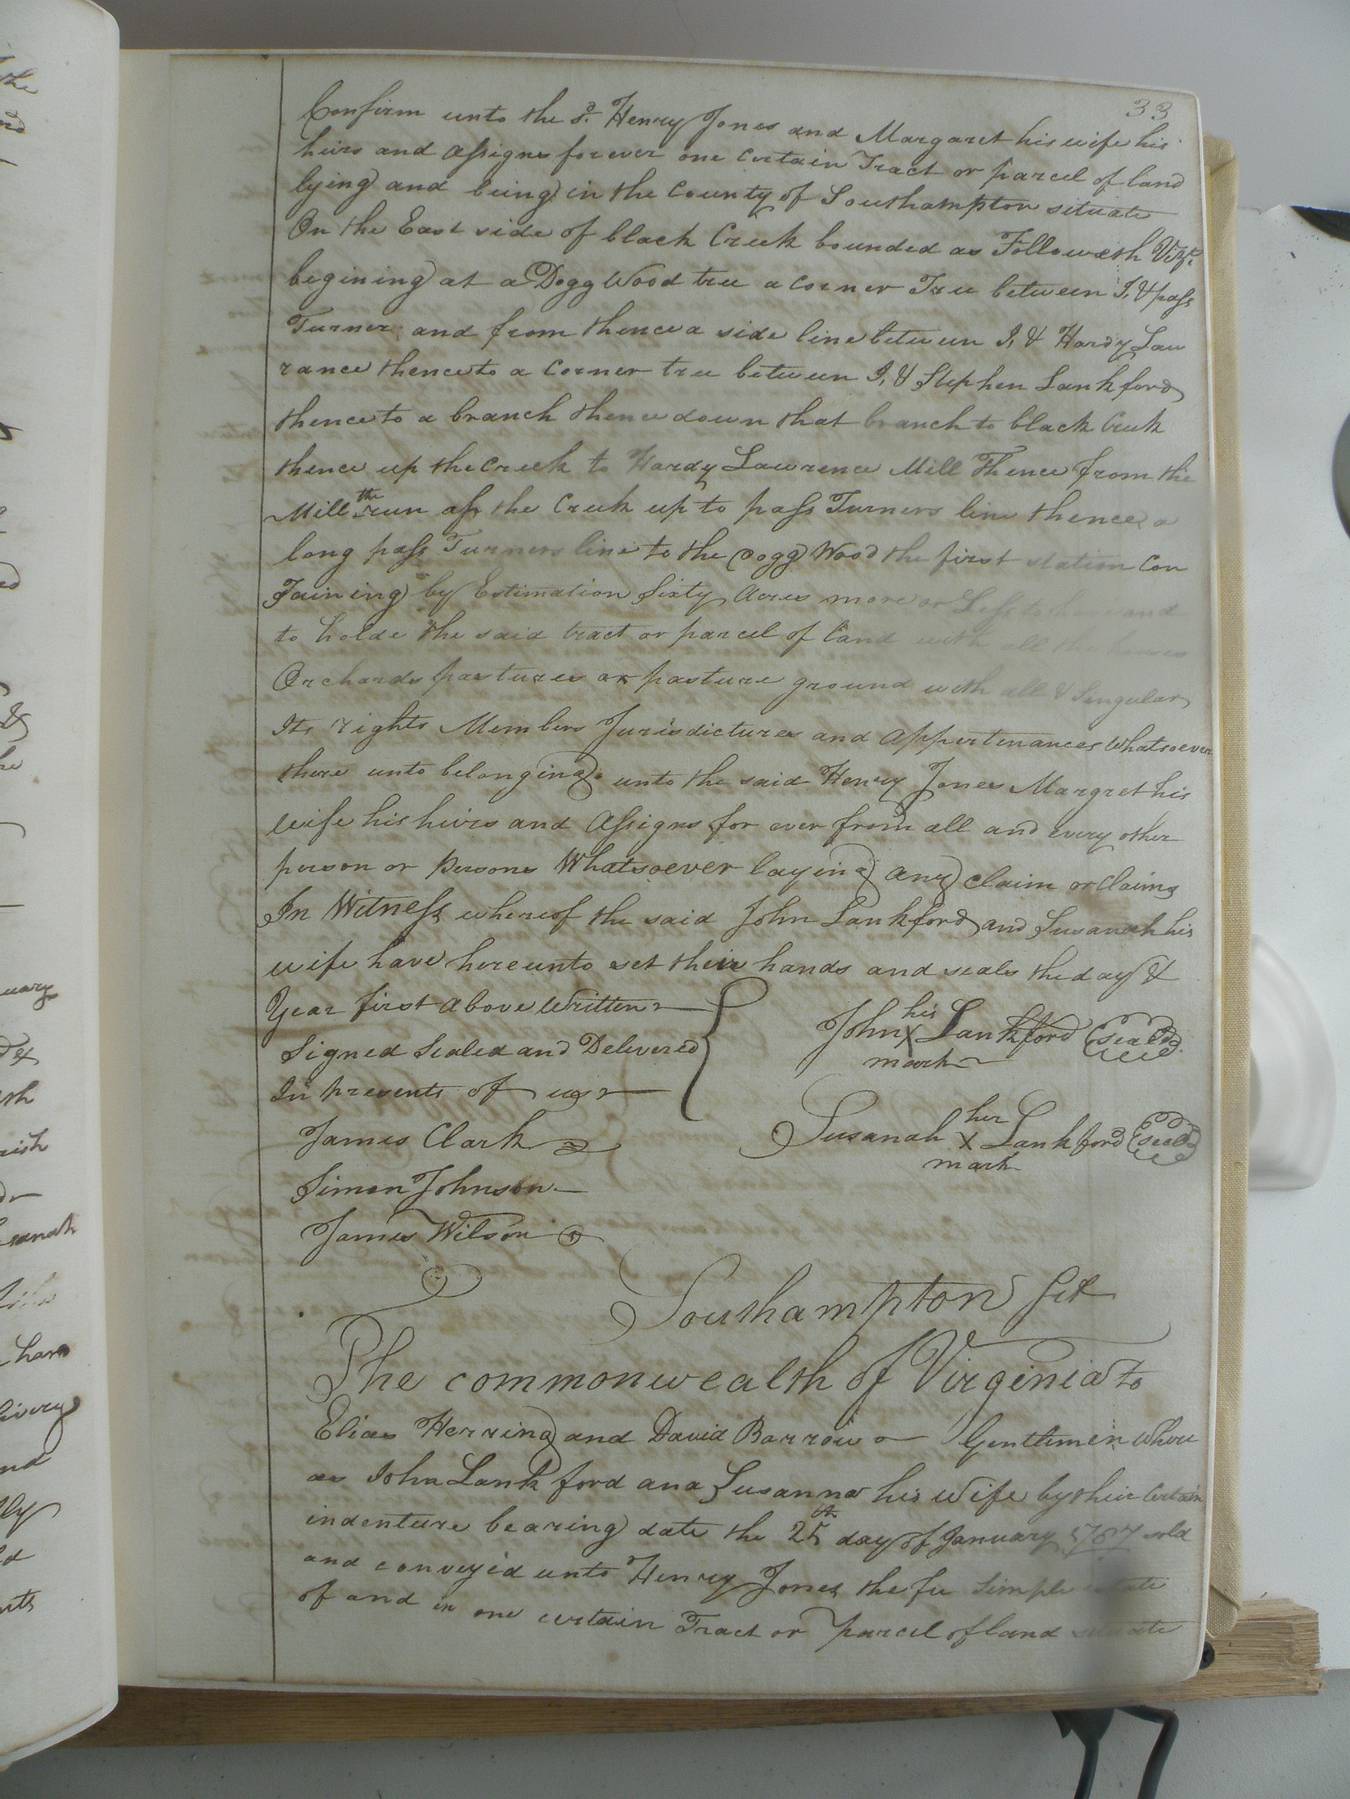 33
Confirm unto the sd. Henry Jones and Margaret his wife his
heirs and Assigns forever one certain Tract or parcel of land
lying and being in the County of Southampton situate
On the East side of black Creek bounded as Followeth Vizt.
begining at a Dogg Wood tree a corner Tree between I, & pass
Turner and from thence a side line between I, & Hardy Law
rance thence to a Corner tree between I, & Stephen Lankford
thence to a branch thence down that branch to black Creek
thence up the Creek to Hardy Lawrence Mill Thence from the
Mill the run as the Creek up to pass Turners line thence a
long pass Turners line to the Dogg Wood the first station Con
Taining by Estimation Sixty Acres more or Less to have and
to holde the said tract or parcel of land with all the houses
Orchards pastures or pasture ground with all & Singular
Its rights Members Jurisdictures and Appertenances whatsoever
there unto belonging unto the said Henry Jones Margret his
wife his heirs and Assigns for ever from all and every other
person or Persons Whatsoever laying any claim or claims
In Witness whereof the said John Lankford and Susanah his
wife have hereunto set their hands and seals the day &
Year first above written
Signed Sealed and Delivered
In presents of us
James Clark
Simon Johnson
James Wilson
his
John X Lankford seal
mark
her
Susanah X Lankford seal
mark
Southampton Sct
The commonwealth of Virginia to
Elias Herring and David Barrow Gentlemen where
as John Lankford and Susanna his Wife by their Certain
indenture bearing date the 25th day of January 1787 sold
and convey'd unto Henry Jones the fee Simple estate
of and in one certain Tract or parcel of land situate